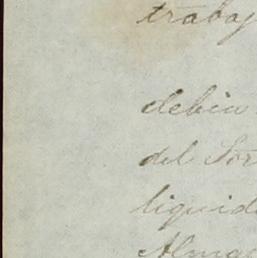 trabaj
debia
del Sor
liquid
Almac